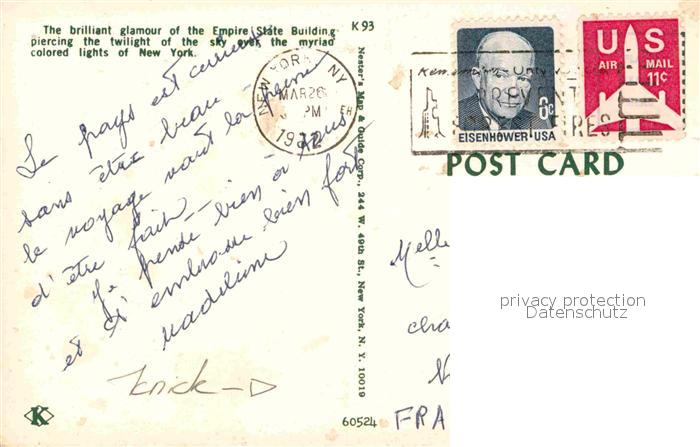 The brilliant glamour of the Empire State Building
piercing the twilight of the sky over the myriad
colored lights of New York.
K 93
Le pays est curieux
sans être beau -
le voyage vaut la peine
d'être fait -- 
Je pense bien à vous
et t'embrasse bien fort
Madeleine
K
Nester's Map & Guide Corp., 244 W. 49th St., New York, N. Y. 10019
60524
NEW YORK, NY
MAR 26
PM
1972
PREVENT
FIRES
8c
EISENHOWER·USA
US
AIR MAIL
11c
POST CARD
Melle
cha
N
FRA
privacy protection
Datenschutz